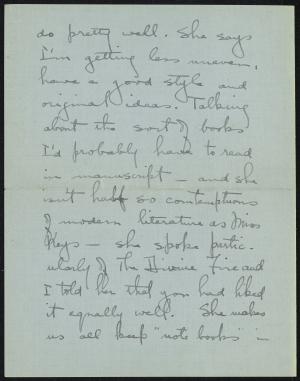 do pretty well. She says
I'm getting less uneven,
have a good style and
original ideas. Talking
about the sort of books
I'd probably have to read
in manuscript – and she
isn't half so contemptuous
of modern literature as Miss
Keys – she spoke partic-
ularly of The Divine Fire and
I told her that you had liked
it equally well. She makes
us all keep "note books" in